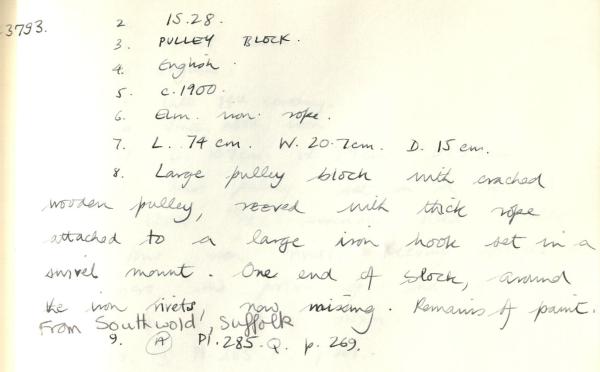 3793. 2 15.28.
3. PULLEY BLOCK.
4. English.
5. c.1900.
6. Elm. iron. rope.
7. L. 74 cm. W. 20.7cm. D. 15 cm.
8. Large pulley block with cracked
wooden pulley, reeved with thick rope
attached to a large iron hook set in a
swivel mount. One end of block, around
the iron rivets, now missing. Remains of paint.
From Southwold, Suffolk
9. A Pl. 285. Q. p. 269.